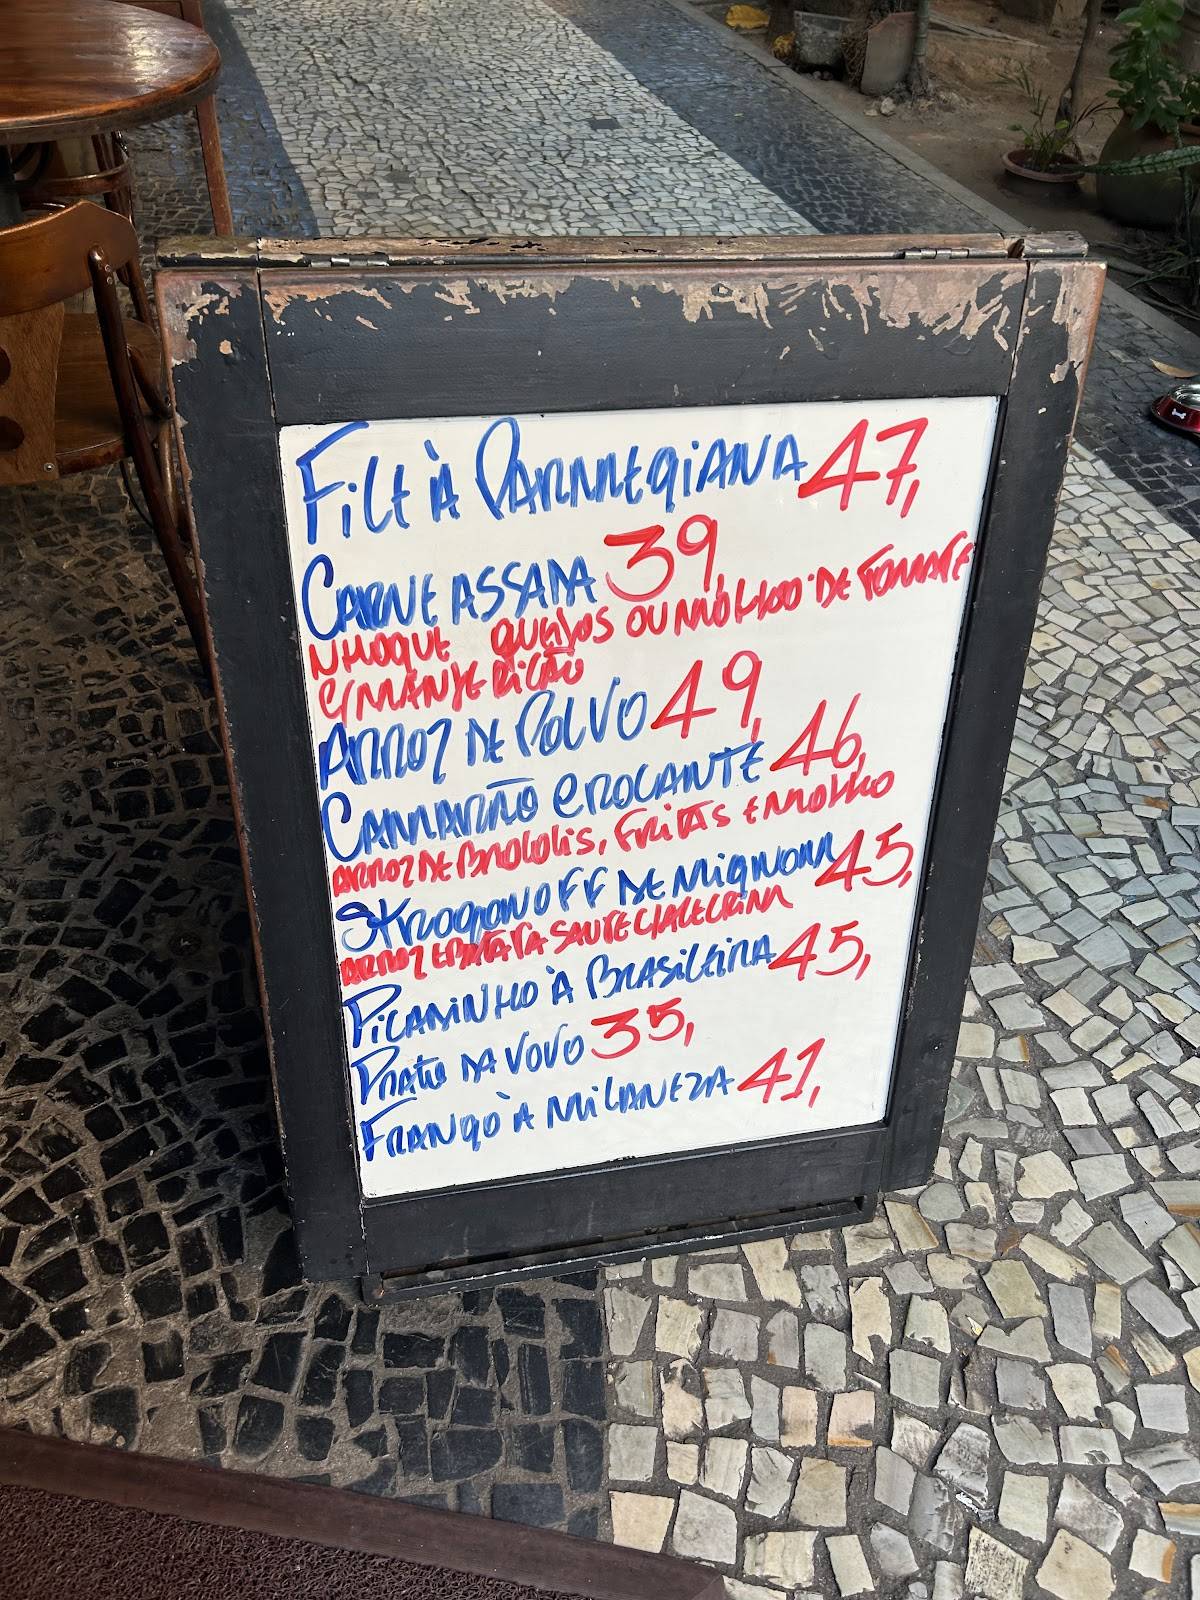 FiLÉ À PARMEGIANA 47,
CARNE ASSADA 39,
NHOQUE QUEIJOS OU MOLHO DE TOMATE
C/MANJERICÃO
ARROZ DE POLVO 49,
CAMARÃO CROCANTE 46,
ARROZ DE BRÓCOLIS, FRITAS E MOLHO
STROGONOFF DE MIGNON 45,
ARROZ E BATATA SAUTE C/ALECRIM
PICADINHO À BRASILEIRA 45,
PRATO DA VOVO 35,
FRANGO À MILANEZA 41,